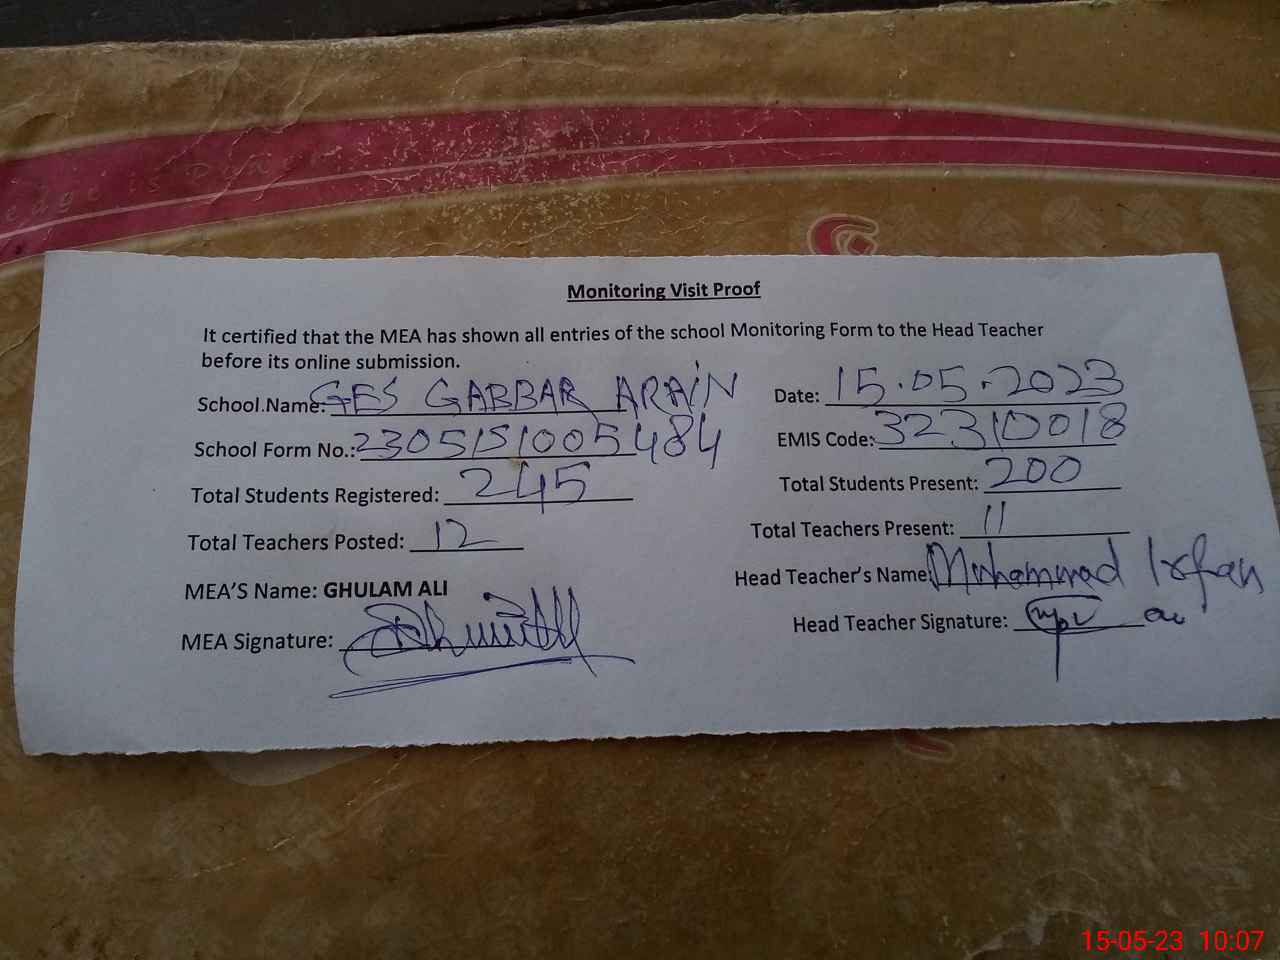 Monitoring Visit Proof
It certified that the MEA has shown all entries of the school Monitoring Form to the Head Teacher
before its online submission.
School.Name: GES GABBAR ARAIN Date: 15.05.2023
School Form No.: 2305151005484 EMIS Code: 32310018
Total Students Registered: 245 Total Students Present: 200
Total Teachers Posted: 12 Total Teachers Present: 11
MEA'S Name: GHULAM ALI Head Teacher's Name: Muhammad Irfan
MEA Signature: Head Teacher Signature:
15-05-23 10:07